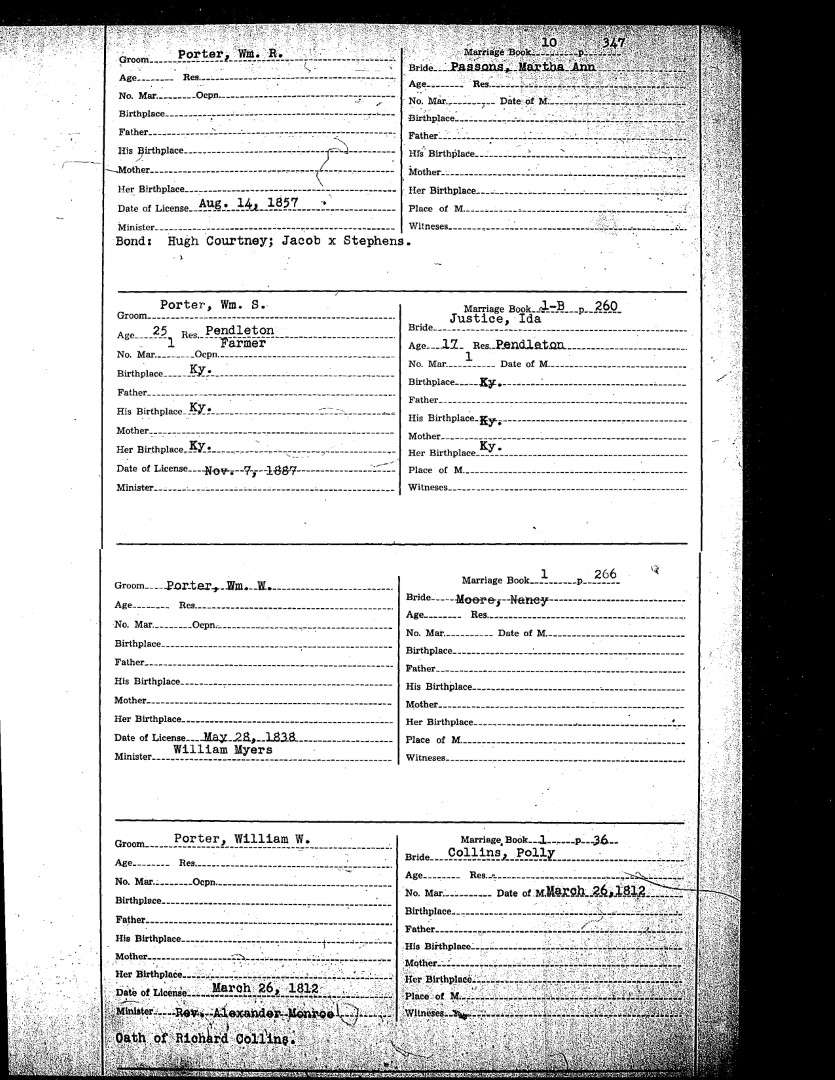 Groom Porter, Wm. R.
Age Res.
No. Mar. Ocpn.
Birthplace
Father
His Birthplace
Mother
Her Birthplace
Date of License Aug. 14, 1857
Minister
Marriage Book 10 p. 347
Bride Passons, Martha Ann
Age Res.
No. Mar. Date of M.
Birthplace
Father
His Birthplace
Mother
Her Birthplace
Place of M.
Witneses
Bond: Hugh Courtney; Jacob x Stephens.
Groom Porter, Wm. S.
Age 25 Res. Pendleton
No. Mar. 1 Ocpn. Farmer
Birthplace Ky.
Father
His Birthplace Ky.
Mother
Her Birthplace Ky.
Date of License Nov. 7, 1887
Minister
Marriage Book 1-B p. 260
Bride Justice, Ida
Age 17 Res. Pendleton
No. Mar. 1 Date of M.
Birthplace Ky.
Father
His Birthplace Ky.
Mother
Her Birthplace Ky.
Place of M.
Witneses
Groom Porter, Wm. W.
Age Res.
No. Mar. Ocpn.
Birthplace
Father
His Birthplace
Mother
Her Birthplace
Date of License May 28, 1838
Minister William Myers
Marriage Book 1 p. 266
Bride Moore, Nancy
Age Res.
No. Mar. Date of M.
Birthplace
Father
His Birthplace
Mother
Her Birthplace
Place of M.
Witneses
Groom Porter, William W.
Age Res.
No. Mar. Ocpn.
Birthplace
Father
His Birthplace
Mother
Her Birthplace
Date of License March 26, 1812
Minister Rev. Alexander Monroe
Marriage Book 1 p. 36
Bride Collins, Polly
Age Res.
No. Mar. Date of M. March 26, 1812
Birthplace
Father
His Birthplace
Mother
Her Birthplace
Place of M.
Witneses
Oath of Richard Collins.